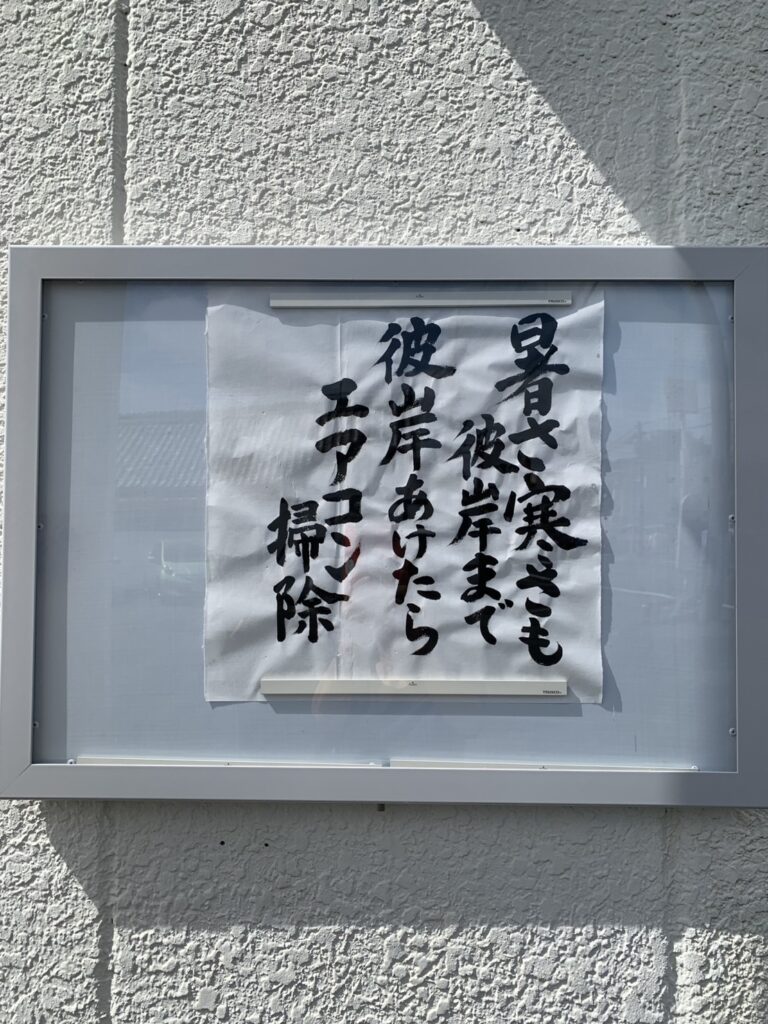 暑さ寒さも
彼岸まで
彼岸あけたら
エアコン
掃除
TRUSCO
TRUSCO